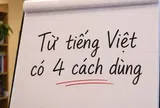 Từ tiếng Việt
có 4 cách dùng